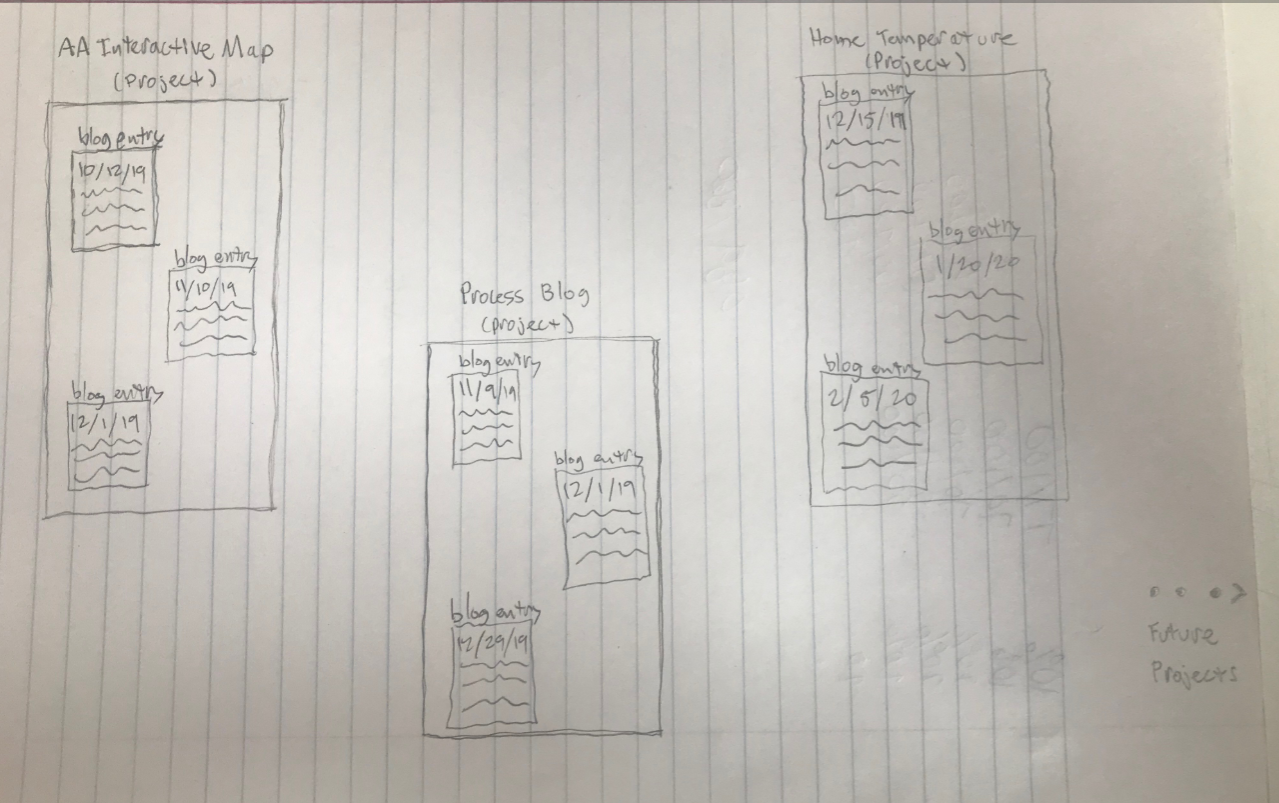 AA Interactive Map
(Project)
blog entry
10/12/19
blog entry
11/10/19
blog entry
12/1/19
Process Blog
(project)
blog entry
11/9/19
blog entry
12/1/19
blog entry
12/29/19
Home Tamperature
(Project)
blog entry
12/15/19
blog entry
1/20/20
blog entry
2/5/20
Future
Projects